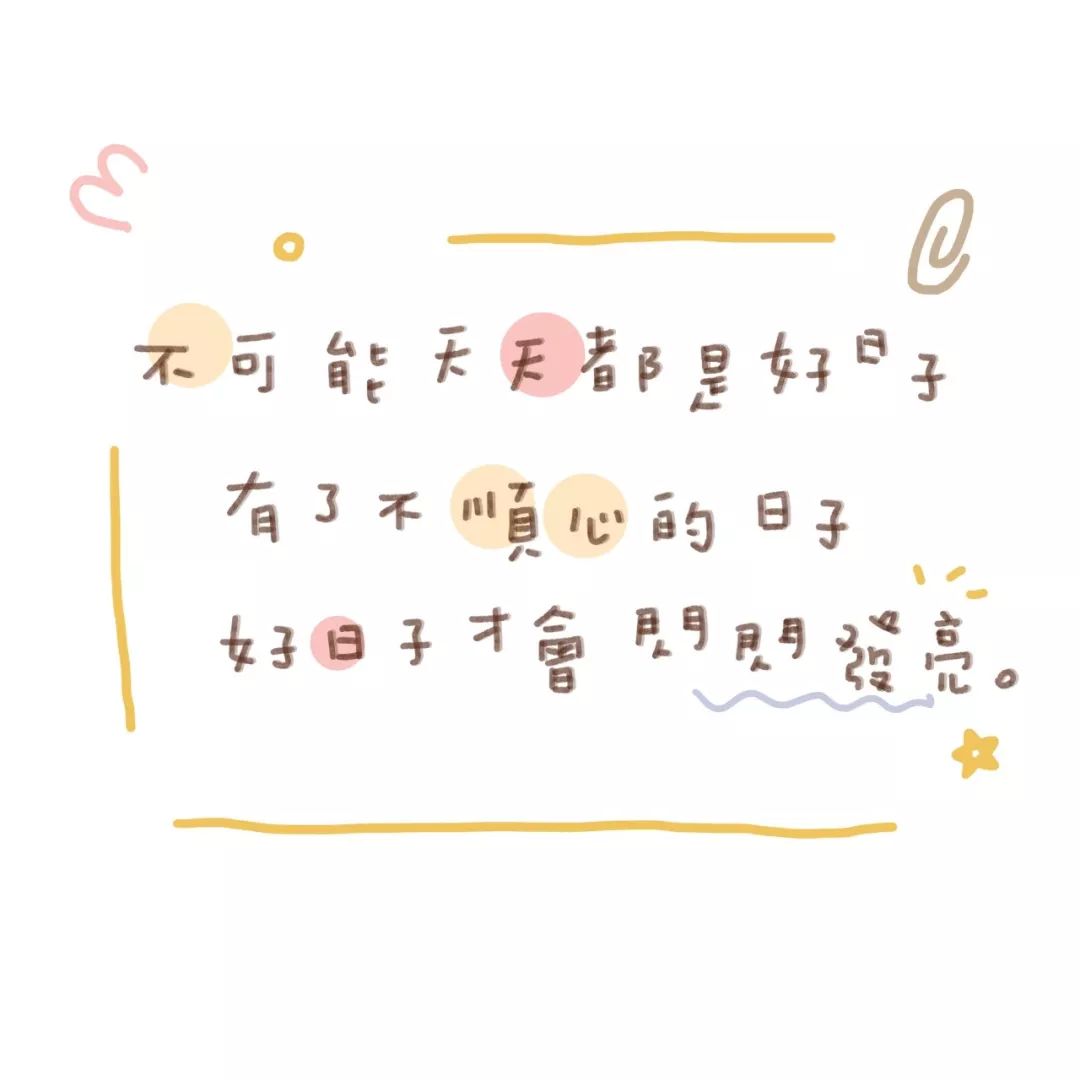 不可能天天都是好日子
有了不順心的日子
好日子才會閃閃發亮。